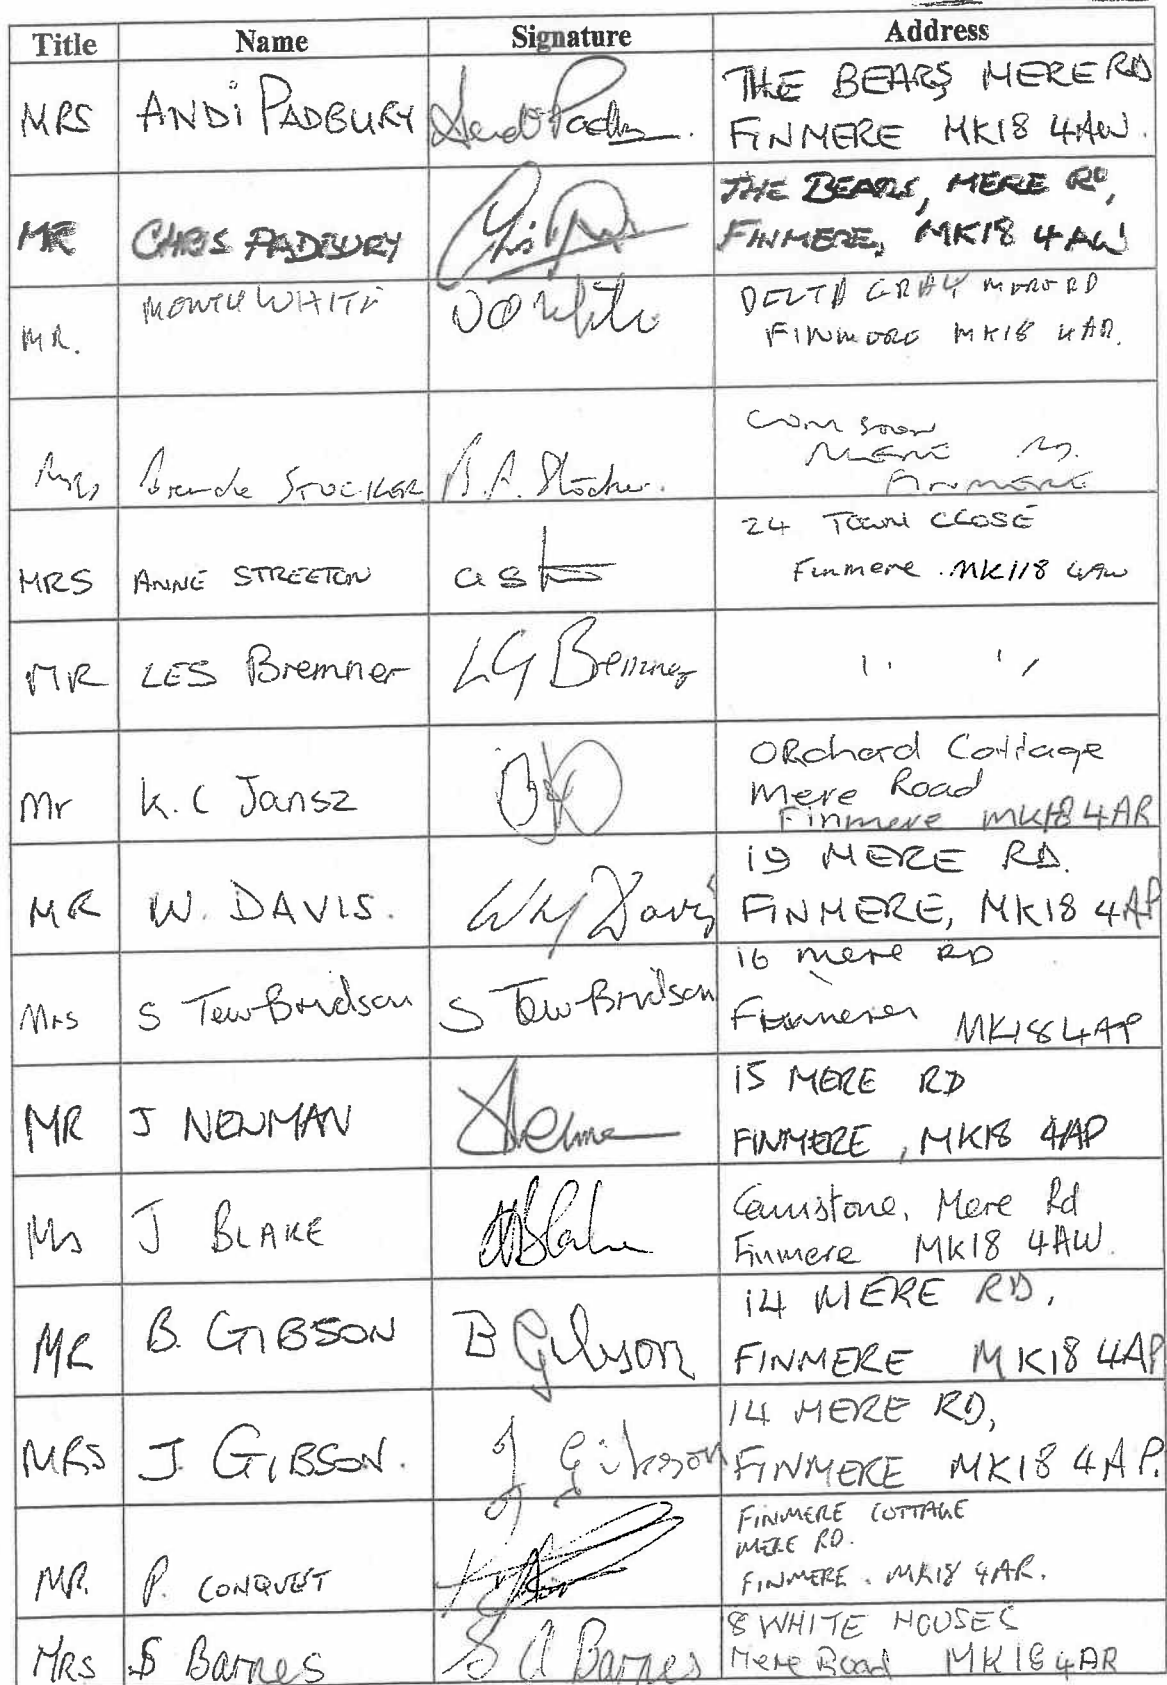 Title Name Signature Address
MRS ANDi PADBURY THE BEARS MERE RD
FINMERE MK18 4AW.
MR CHRIS PADBURY THE BEARS, MERE RD,
FINMERE, MK18 4AW
MR. WHITE DELTA GRAY MERE RD
FINMERE MK18 4AR.
Mrs STOCKER B.A. Stocker.
MERE RD.
FINMERE
MRS ANNE STREETON 24 TOWN CLOSE
Finmere. MK118 4AW
MR LES Bremner LG Bremner
Mr K. C Jansz ORchard Cottage
Mere Road
Finmere MK18 4AR
MR W. DAVIS. W Davis 19 MERE RD.
FINMERE, MK18 4AP
Mrs S Tew-Bridson S Tew-Bridson 16 mere RD
MK18 4AP
MR J NEWMAN 15 MERE RD
FINMERE, MK18 4AP
Ms J BLAKE Mere Rd
Finmere MK18 4AW.
MR B. GIBSON B Gibson 14 MERE RD,
FINMERE MK18 4AP
MRS J. GIBSON. J Gibson 14 MERE RD,
FINMERE MK18 4AP.
MR. P. CONQUEST FINMERE COTTAGE
MERE RD.
FINMERE. MK18 4AR.
MRS S Barnes S A Barnes 8 WHITE HOUSES
Mere Road MK18 4AR